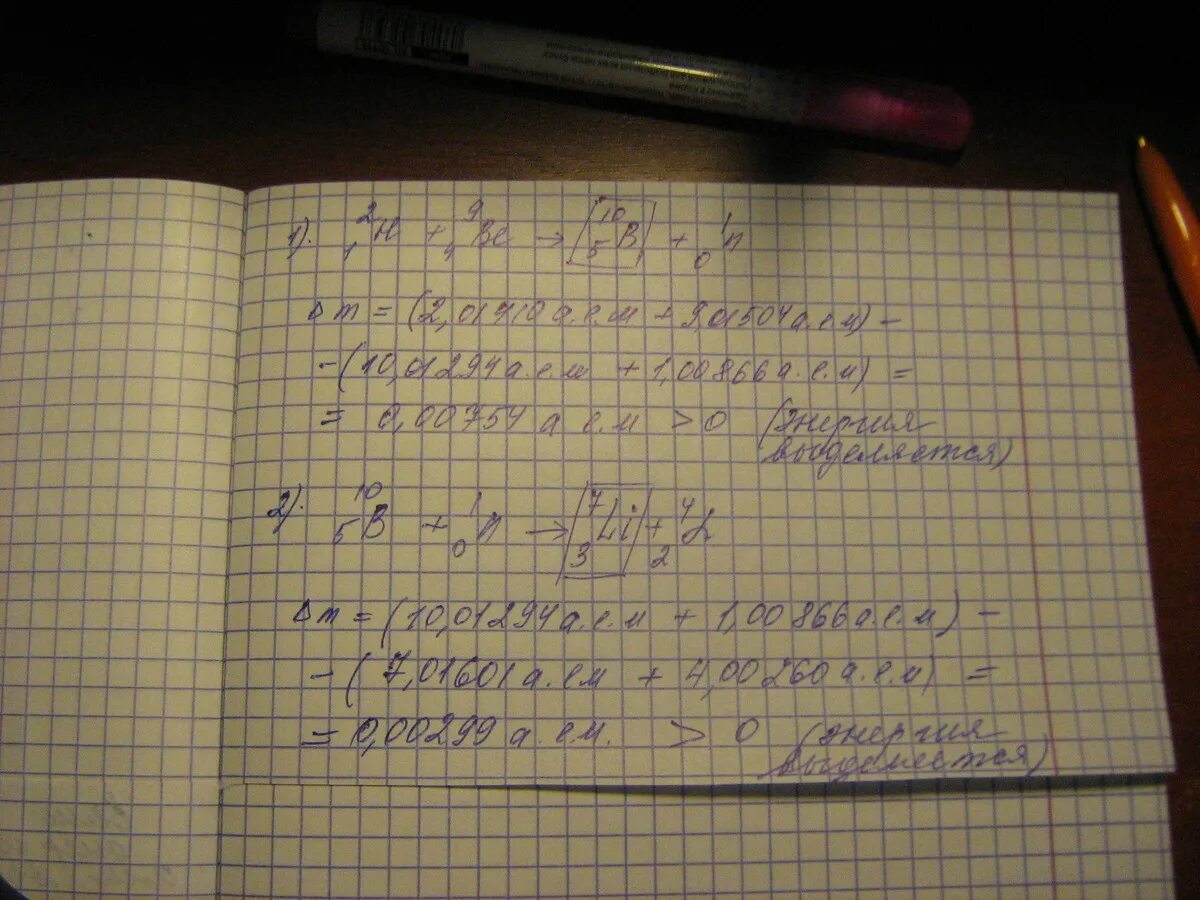 1). ²₁H + ⁹₄Be → [¹⁰₅B] + ¹₀n
Δm = (2,01410 а.е.м + 9,01504 а.е.м) –
– (10,01294 а.е.м + 1,00866 а.е.м) =
= 0,00754 а е.м > 0 (энергия
выделяется)
2). ¹⁰₅B + ¹₀n → [⁷₃Li] + ⁴₂α
Δm = (10,01294 а.е.м + 1,00866 а.е.м) –
– (7,01601 а.ем + 4,00260 а.е.м) =
= 0,00299 а.ем. > 0 (энергия
выделяется)